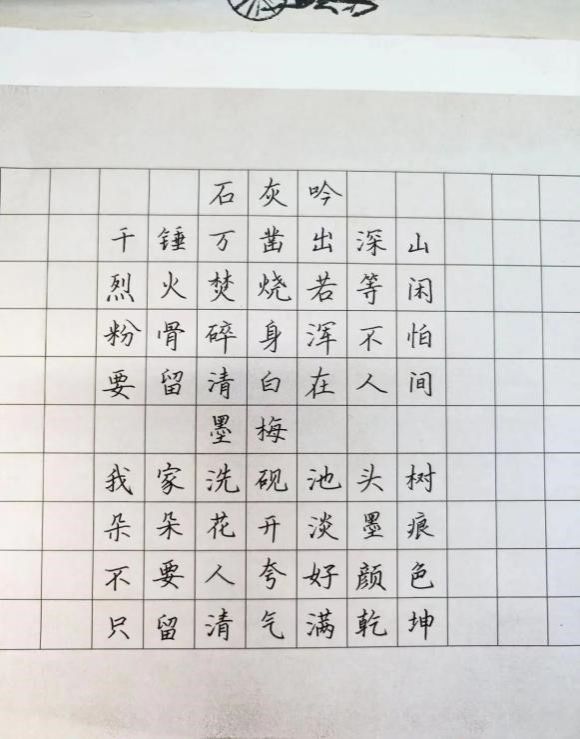 石灰吟
千锤万凿出深山
烈火焚烧若等闲
粉骨碎身浑不怕
要留清白在人间
墨梅
我家洗砚池头树
朵朵花开淡墨痕
不要人夸好颜色
只留清气满乾坤